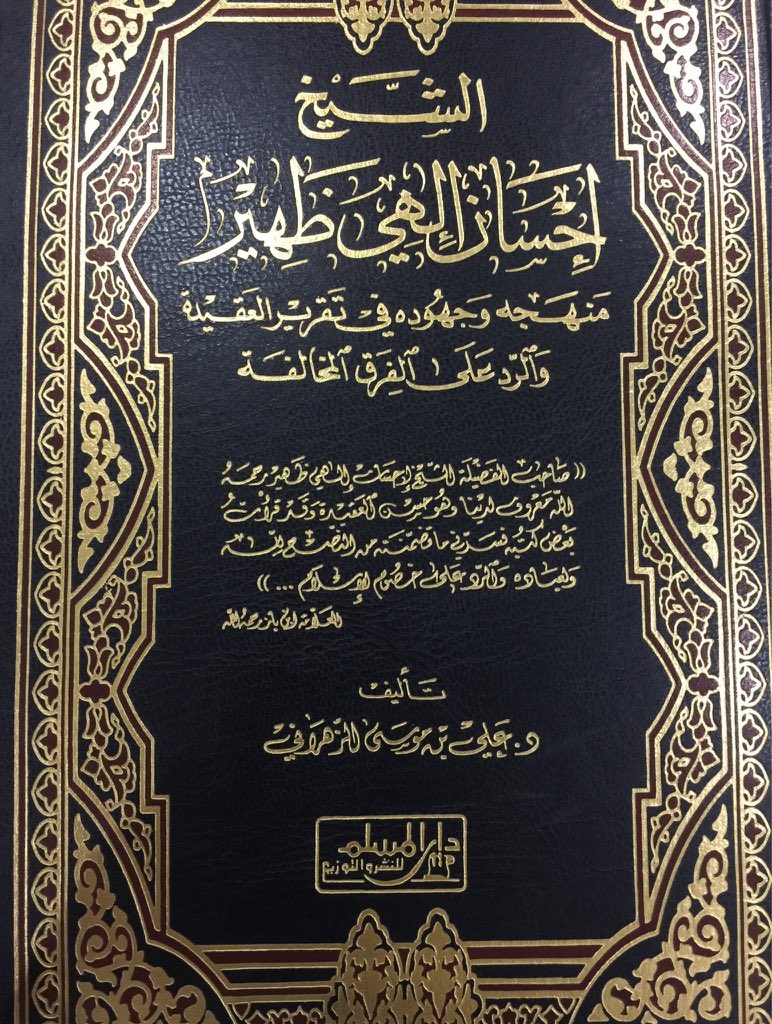 الشيخ
إحسان إلهي ظهير
منهجه وجهوده في تقرير العقيدة
والرد على الفرق المخالفة
(( صاحب الفضيلة الشيخ إحسان إلهي ظهير رحمه
الله معروف لدينا وهو حسن العقيدة وقد قرأت
بعض كتبه فسرني ما تضمنته من النصح لله
ولعباده والرد على خصوم الإسلام ... ))
العلامة ابن باز رحمه الله
تأليف
د. علي بن موسى الزهراني
دار المسلم
للنشر والتوزيع